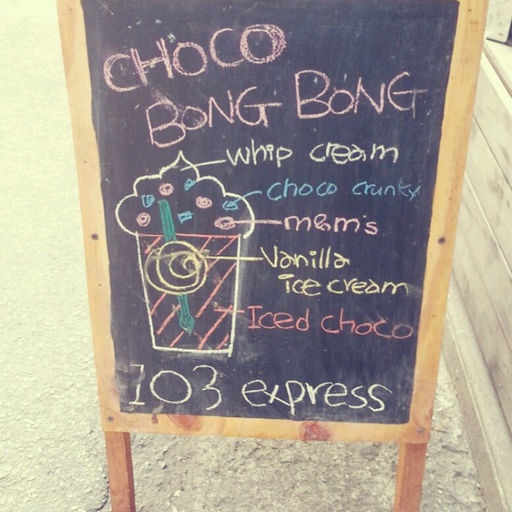 CHOCO
BONG BONG
whip cream
choco crunky
m&m's
Vanilla
ice cream
Iced choco
103 express